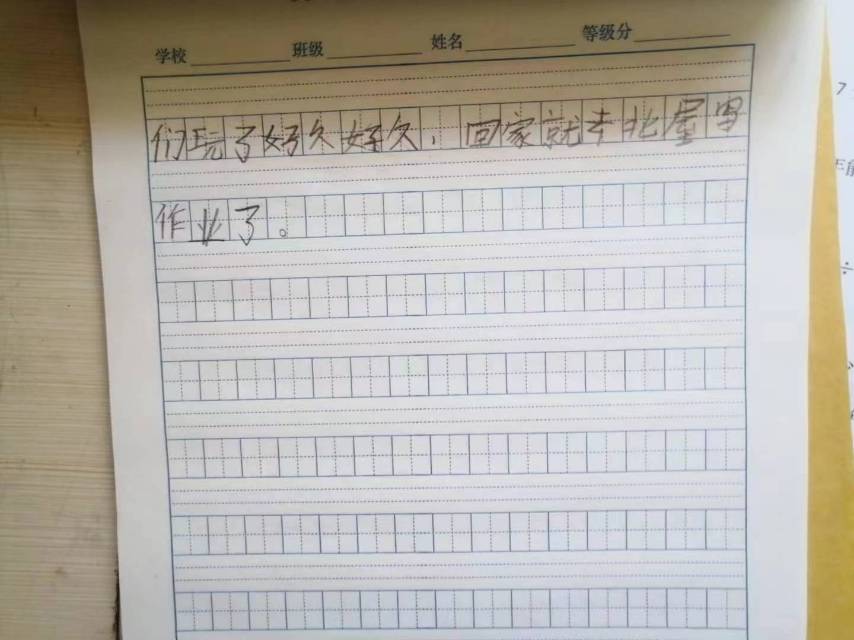 学校 班级 姓名 等级分
们玩了好久好久，回家就去北屋写
作业了。
7
÷